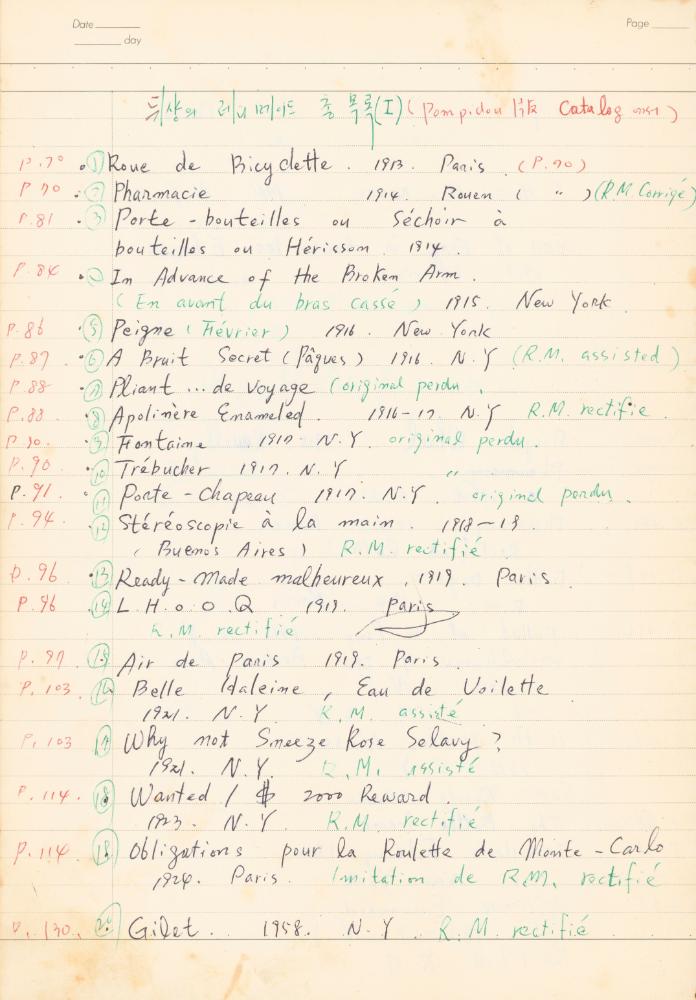 Date
day
Page
뒤샹의 레디메이드 총 목록 (I) (Pompidou 版 Catalog 에서)
P.70 ① Roue de Bicyclette. 1913. Paris (P.70)
P 70 ② Pharmacie 1914. Rouen ( " ) (R.M. Corrigé)
P.81 ③ Porte-bouteilles ou Séchoir à
bouteilles ou Hérisson. 1914.
P.84 In Advance of the Broken Arm.
(En avant du bras cassé) 1915. New York.
P.86 ⑤ Peigne (Fiévrier) 1916. New York
P.87 ⑥ A Bruit Secret (Pâques) 1916. N.Y (R.M. assisted)
P.88 ⑦ Pliant ... de voyage (original perdu.
P.88 ⑧ Apolinère Enameled. 1916-17 N.Y R.M. rectifie.
P 90. ⑨ Fontaine 1917 N.Y. original perdu.
P.90 ⑩ Trébucher 1917. N.Y "
P.91 ⑪ Porte-chapeau 1917. N.Y. original perdu.
P.94 ⑫ Stéréoscopie à la main. 1918-19
(Buenos Aires) R.M. rectifié
P.96 ⑬ Ready-Made malheureux, 1919. Paris.
P.96 ⑭ L.H.O.O.Q 1919. Paris
R.M. rectifié
P.97 ⑮ Air de Paris 1919. Paris.
P.103 ⑯ Belle Haleine, Eau de Voilette
1921. N.Y R.M. assisté
P.103 ⑰ Why not Sneeze Rose Selavy?
1921. N.Y. R.M. assisté
P.114. ⑱ Wanted / $ 2000 Reward.
1923. N.Y. R.M rectifié
P.114 ⑲ Obligations pour la Roulette de Monte-Carlo
1924. Paris. Imitation de R.M. rectifié
P.130. ⑳ Gilet. 1958. N.Y. R.M. rectifié